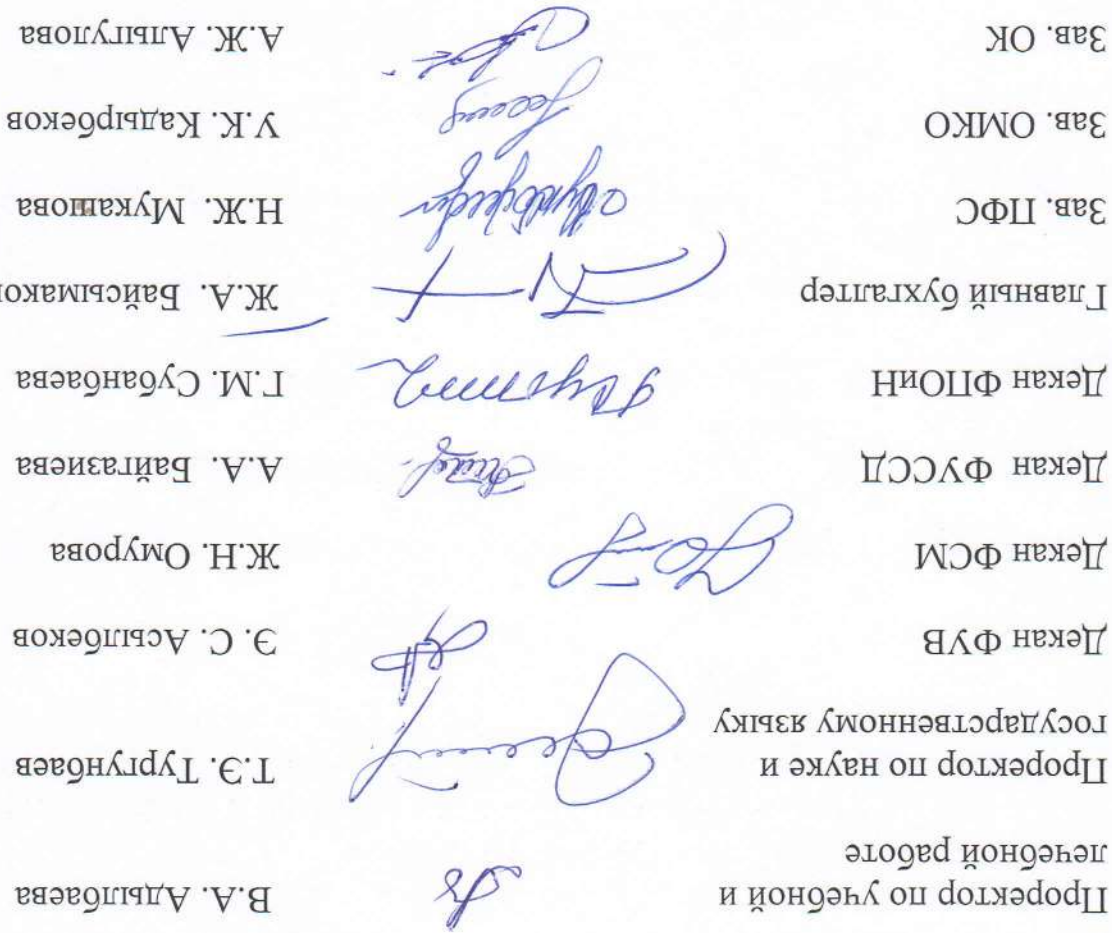 Проректор по учебной и
лечебной работе В.А. Адылбаева
Проректор по науке и
государственному языку Т.Э. Тургунбаев
Декан ФУВ Э. С. Асылбеков
Декан ФСМ Ж.Н. Омурова
Декан ФУССД А.А. Байгазиева
Декан ФПОиН Г.М. Субанбаева
Главный бухгалтер Ж.А. Байсымаков
Зав. ПФС Н.Ж. Мукашова
Зав. ОМКО У.К. Кадырбеков
Зав. ОК А.Ж. Алыгулова